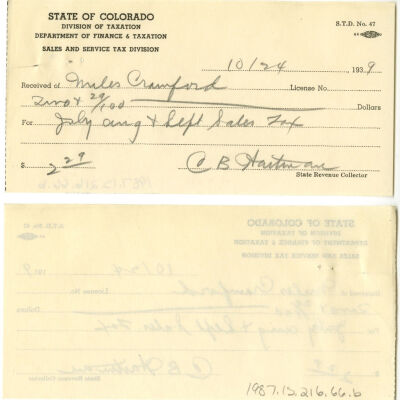 STATE OF COLORADO
DIVISION OF TAXATION
DEPARTMENT OF FINANCE & TAXATION
SALES AND SERVICE TAX DIVISION
S.T.D. No. 47
10/24 1939
Received of Miles Crawford License No.
Two & 29/100 Dollars
For July aug & Sept Sales Tax
$ 2 29 C B Hartman
State Revenue Collector
1987.15.216.66.b